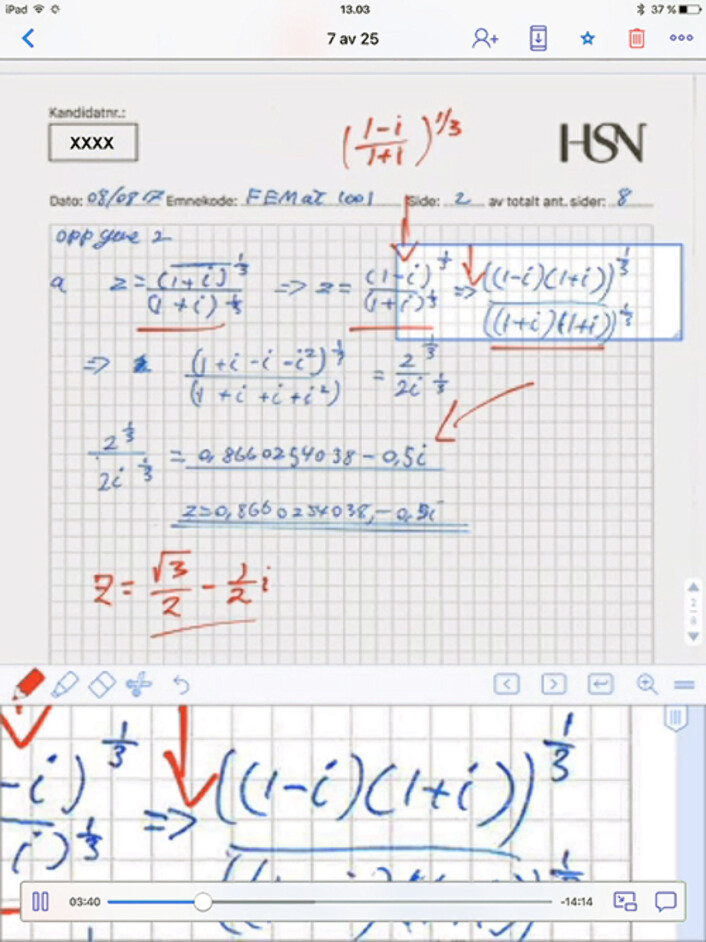 iPad 13.03 37 %
7 av 25
Kandidatnr.:
XXXX
(1-i/1+i)^1/3
HSN
Dato: 08/08 17 Emnekode: FEMat 1001 Side: 2 av totalt ant. sider: 8
oppgave 2
a z = (1+i)^1/3 / (1+i)^1/3 => z = (1-i)^1/3 / (1+i)^1/3 => ((1-i)(1+i))^1/3 / ((1+i)(1+i))^1/3
=> (1+i-i-i²)^1/3 / (1+i+i+i²) = 2^1/3 / 2i^1/3
2^1/3 / 2i^1/3 = 0,8660254038 - 0,5i
z=0,8660254038,-0,5i
Z = √3/2 - 1/2 i
2/8
-i)^1/3 => ((1-i)(1+i))^1/3
i)^1/3
03:40 -14:14